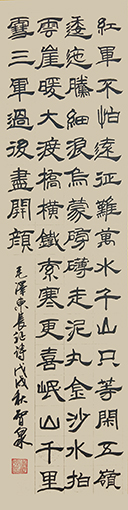 紅軍不怕遠征難萬水千山只等閑五嶺
逶迤騰細浪烏蒙磅礴走泥丸金沙水拍
雲崖暖大渡橋橫鐵索寒更喜岷山千里
雪三軍過後盡開顏
毛澤東長征詩戊戌秋